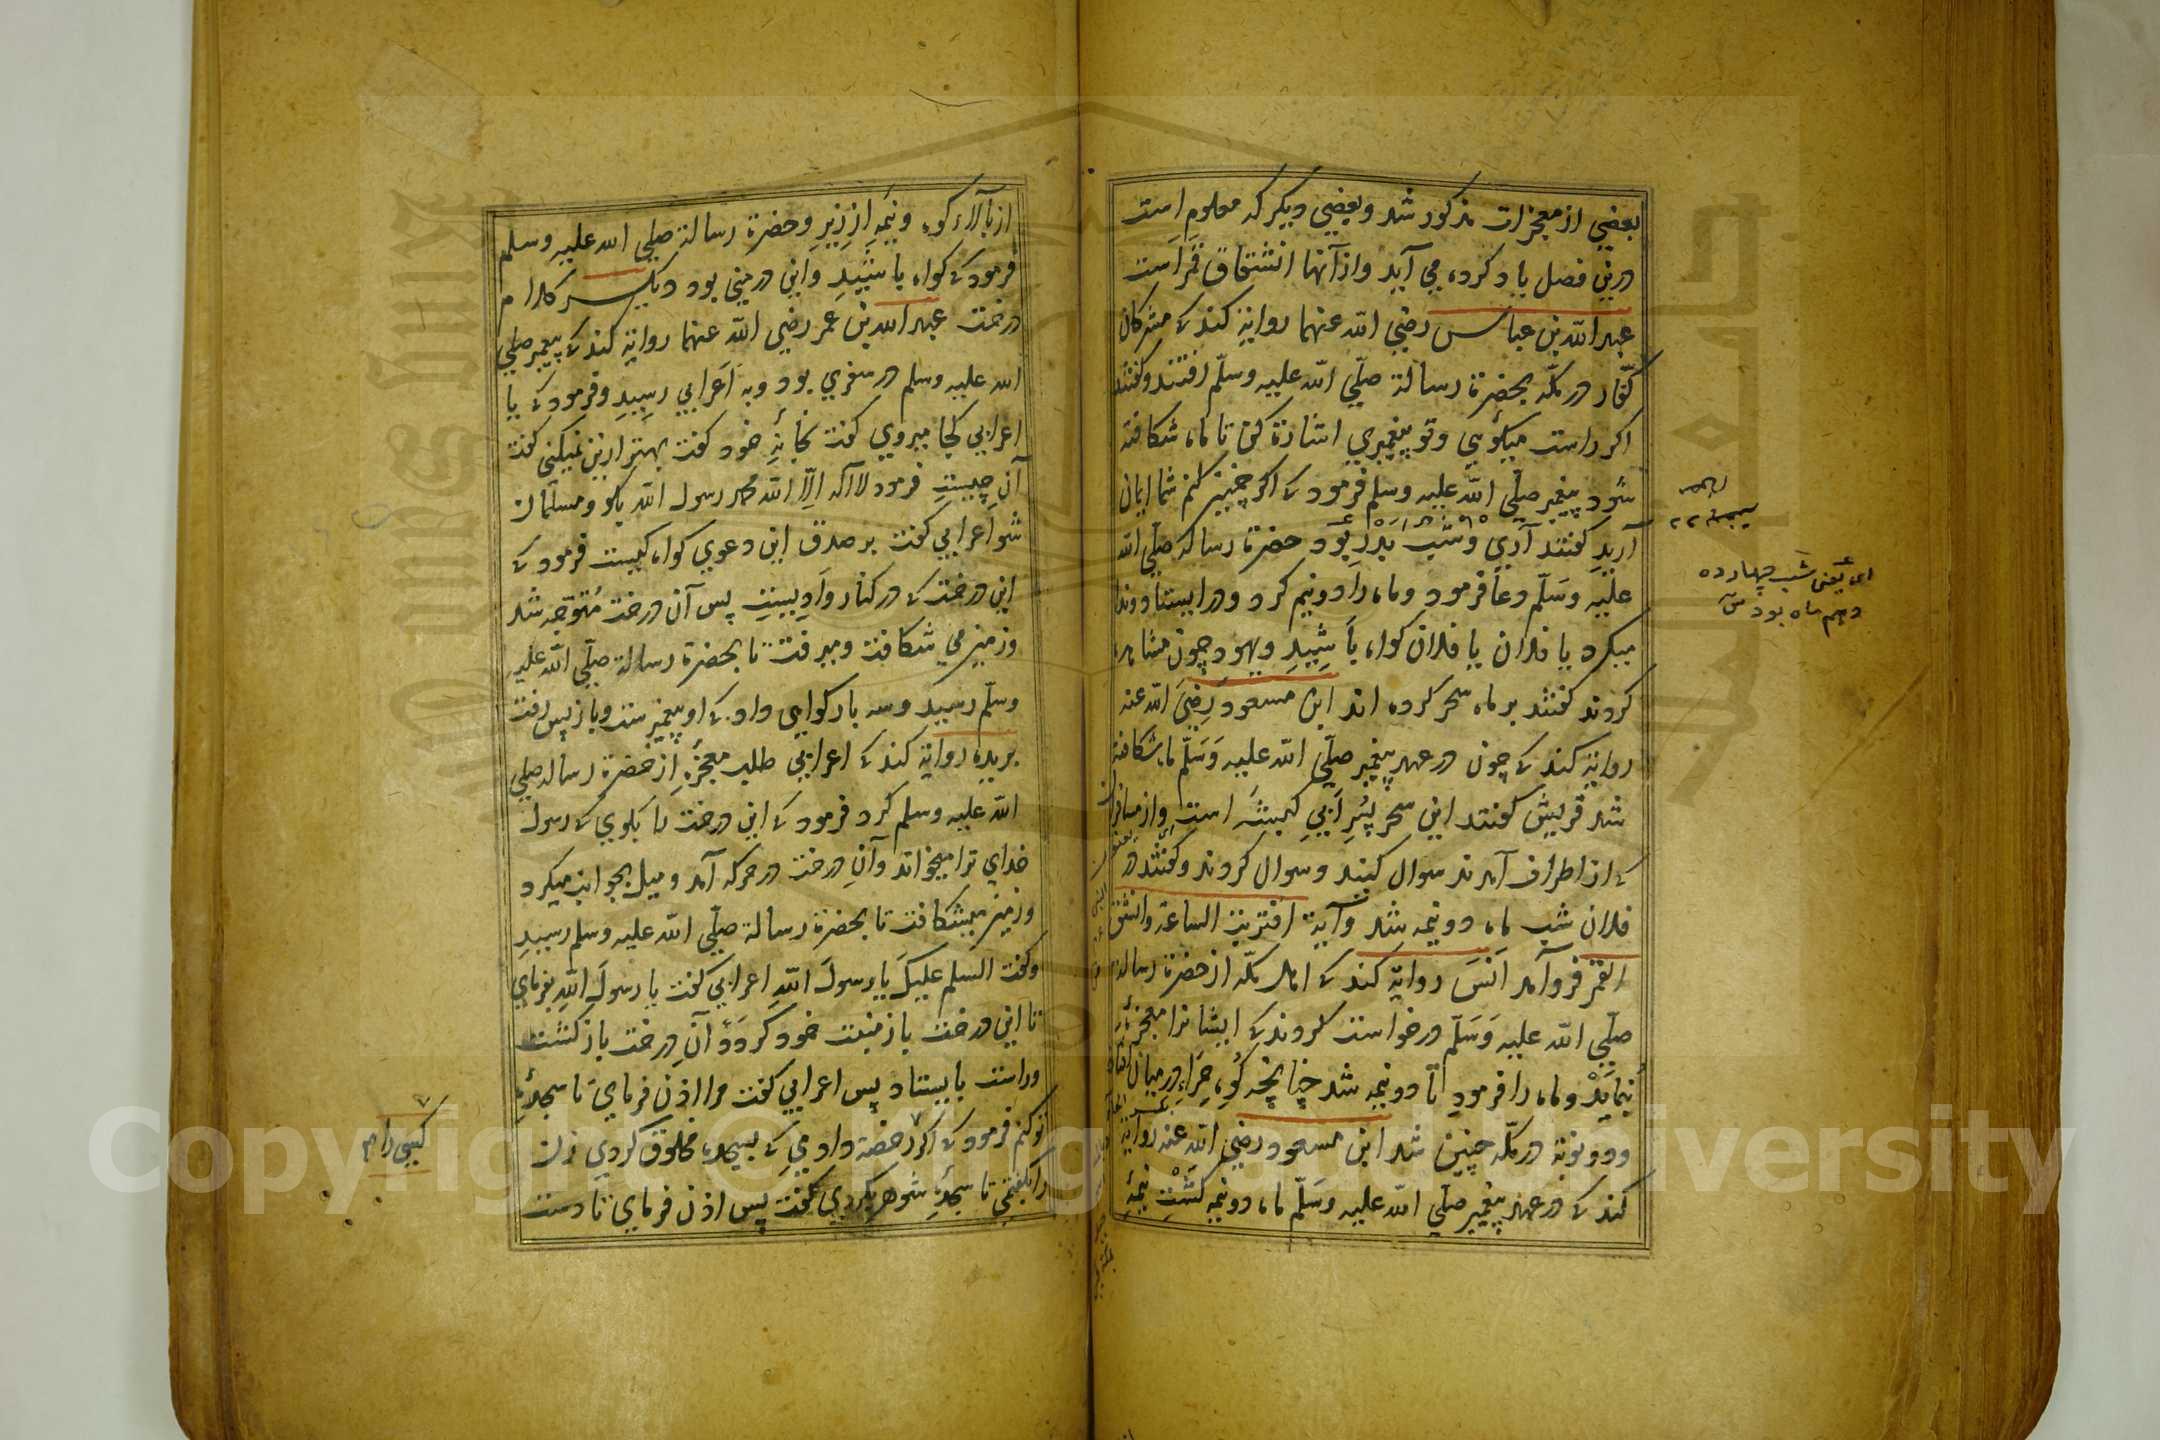 بعضي از معجزات مذكور شد وبعضي ديكر كه معلوم است
درين فصل ياد كرده مي آيد واز آنها انشقاق قمر است
عبد الله بن عباس رضي الله عنهما رواية كند كه مشركان
كفّار در مكّه بحضرة رسالة صلّي الله عليه وسلّم رفتند وكفتند
اكر راست ميكوئي وتو پيغمبري اشارة كن تا ماه شكافته
شود پيغمبر صلّي الله عليه وسلم فرمود كه اكر چنين كنم شما ايمان
آريد كفتند آري وشب بدر بود حضرة رسالة صلّي الله
عليه وسلّم دعا فرمود وماه را دو نيم كرد ودر ايستاد وندا
ميكرد يا فلان يا فلان كواه باشيد ويهود چون مشاهده
كردند كفتند بر ماه سحر كرده اند ابن مسعود رضي الله عنه
رواية كند كه چون در عهد پيغمبر صلّي الله عليه وسلّم ماه شكافته
شد قريش كفتند اين سحر پسر ابي كبيشه است واز مسافران
كه از اطراف آمدند سوال كنيد وسوال كردند وكفتند در
فلان شب ماه دو نيمه شد وآية اقتربت الساعة وانشق
القمر فرو آمد انس رواية كند كه اهل مكّه از حضرة رسالة
صلّي الله عليه وسلّم درخواست كردند كه ايشانرا معجزهٔ
بنمايد وماه را فرمود تا دو نيمه شد چنانچه كوه حراء در ميان
ودو نوبة در مكّه چنين شد ابن مسعود رضي الله عنه رواية
كند كه در عهد پيغمبر صلّي الله عليه وسلّم ماه دو نيمه كشت نيمهٔ
اي يعني شب چهارده
دهم ماه بود
از بالاء كوه ونيمه از زير وحضرة رسالة صلي الله عليه وسلم
فرمود كه كواه باشيد واين در مني بود ديكر كلام
درخت عبد الله بن عمر رضي الله عنهما رواية كند كه پيغمبر صلي
الله عليه وسلم در سفري بود وبه اعرابي رسيد وفرمود كه يا
اعرابي كجا ميروي كفت بخانهٔ خود كفت بهتر ازين نميكني كفت
آن چيست فرمود لا اله الّا الله محمد رسول الله بكو ومسلمان
شو اعرابي كفت بر صدق اين دعوي كواه كيست فرمود كه
اين درخت كه در كنار واديست پس آن درخت متوجه شد
وزمين مي شكافت وميرفت تا بحضرة رسالة صلّي الله عليه
وسلّم رسيد وسه بار كواهي داد كه او پيغمبرست وباز پس رفت
بريده رواية كند كه اعرابي طلب معجزه از حضرة رسالة صلي
الله عليه وسلم كرد فرمود كه اين درخت را بكوي كه رسول
خداي ترا ميخواند وآن درخت در حركه آمد وميل بجوانب ميكرد
وزمين ميشكافت تا بحضرة رسالة صلّي الله عليه وسلم رسيد
وكفت السلم عليك يا رسول الله اعرابي كفت يا رسول الله بفرماي
تا اين درخت باز منبت خود كردد آن درخت باز كشت
وراست بايستاد پس اعرابي كفت مرا اذن فرماي تا سجدهٔ
تو كنم فرمود كه اكر رخصة دادمي كه بسجده مخلوق كردي زن
را بكفتمي تا سجدهٔ شوهر بكردي كفت پس اذن فرماي تا دست
كسي را م
Copyright © King Saud University